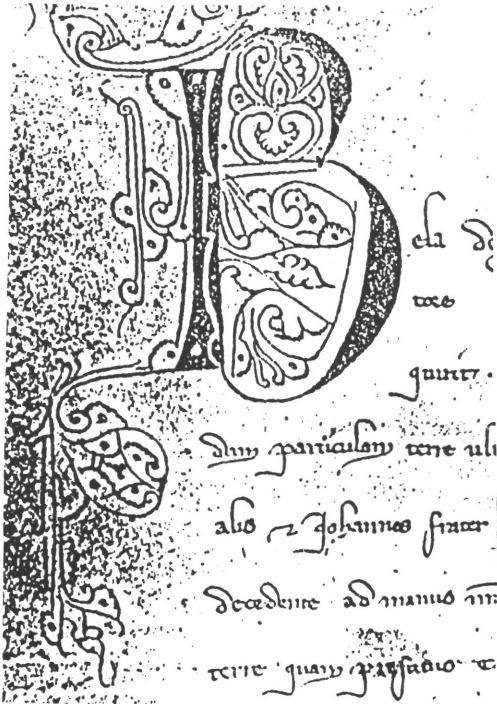 Bela de
tore
quirit .
dam particulam terre uli
alis z Johannes frater
decedente ad manus
terre quam prefatus